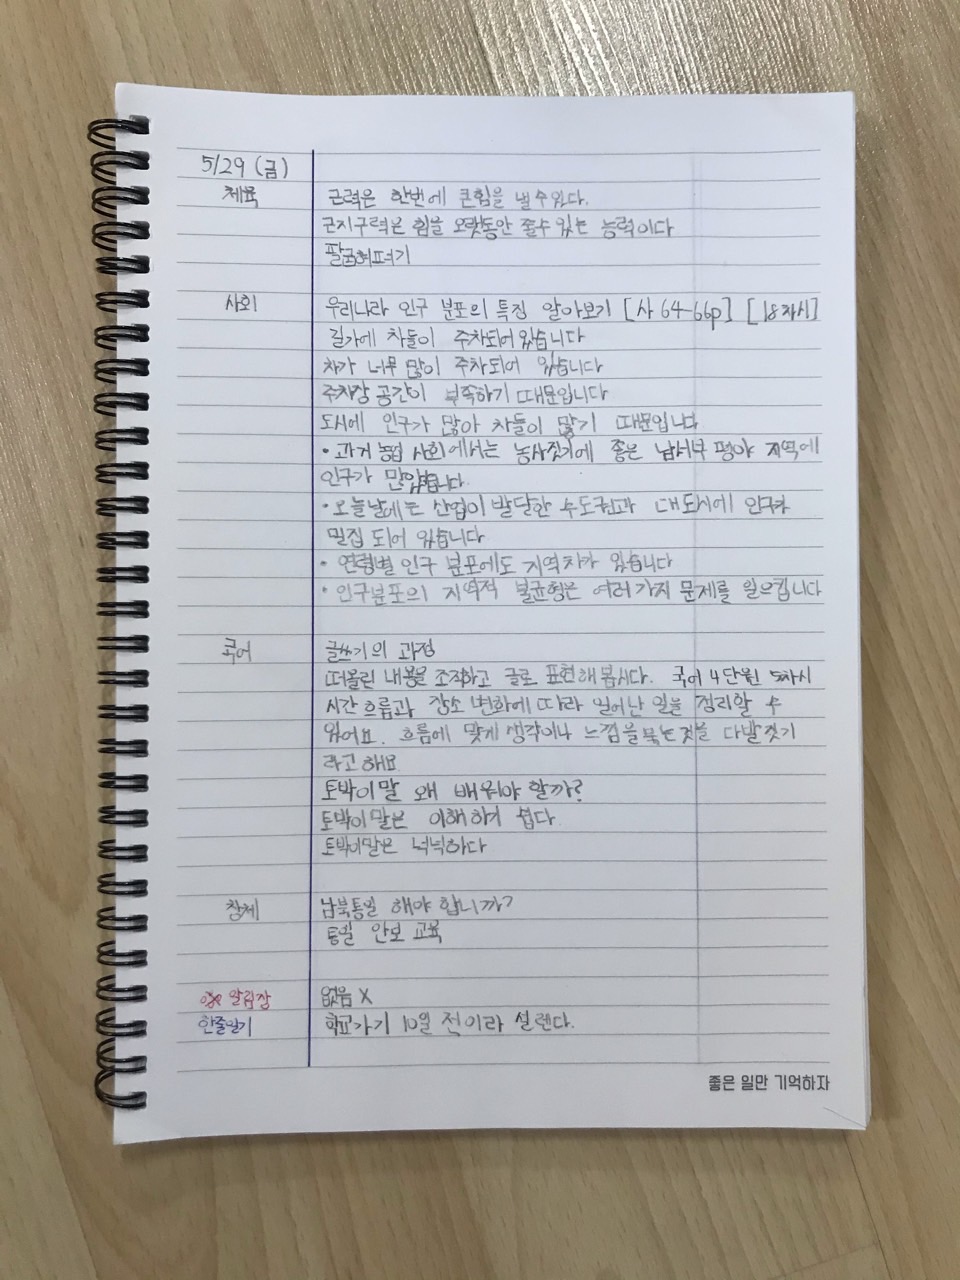 5/29 (금)
체육 근력은 한번에 큰힘을 낼수있다.
근지구력은 힘을 오랫동안 줄수있는 능력이다
팔굽혀펴기
사회 우리나라 인구 분포의 특징 알아보기 [사 64-66p] [18차시]
길가에 차들이 주차되어있습니다
차가 너무 많이 주차되어 있습니다
주차장 공간이 부족하기 때문입니다
도시에 인구가 많아 차들이 많기 때문입니다
• 과거 농업 사회에서는 농사짓기에 좋은 남서부 평야 지역에
인구가 많았습니다.
• 오늘날에는 산업이 발달한 수도권과 대도시에 인구가
밀집 되어 있습니다
• 연령별 인구 분포에도 지역차가 있습니다
• 인구분포의 지역적 불균형은 여러가지 문제를 일으킵니다
국어 글쓰기의 과정
떠올린 내용을 조직하고 글로 표현해 봅시다. 국어 4단원 5차시
시간 흐름과 장소 변화에 따라 일어난 일을 정리할 수
있어요. 흐름에 맞게 생각이나 느낌을 묶는것을 다발짓기
라고 해요
토박이말 왜 배워야 할까?
토박이말은 이해하기 쉽다
토박이말은 넉넉하다
창체 남북통일 해야 합니까?
통일 안보 교육
알림장 없음 X
한줄일기 학교가기 10일 전이라 설렌다.
좋은 일만 기억하자